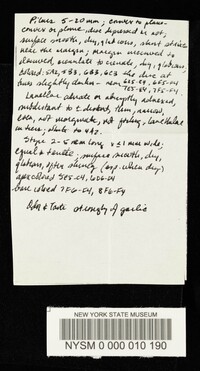 Pileus 5-20 mm; convex to plano-
convex or plane, disc depressed or not,
surface smooth, dry, glabrous, short striate
near the margin; margin incurved to
decurved, crenulate to crenate, dry, glabrous,
colored: 5A2, 5B3, 6B3, 6C3 the disc at
times slightly darker - near 6D5-E4, 6E5-F4
7E5-E4, 7F5-F4
Lamellae adnate or abruptly adnexed,
subdistant to ± distant, thin, narrow,
even, not marginate, not forking, lamellulae
numerous; white to 4A2.
Stipe 2-5 mm long, x ≤ 1 mm wide.
equal & terete; surface smooth, dry,
glabrous, often shiny (esp. when dry)
apex colored 5E5-E4, 6D6-D4
base colored 7F6-F4, 8F6-F4
Odor & Taste strongly of garlic
NEW YORK STATE MUSEUM
NYSM 0 000 010 190